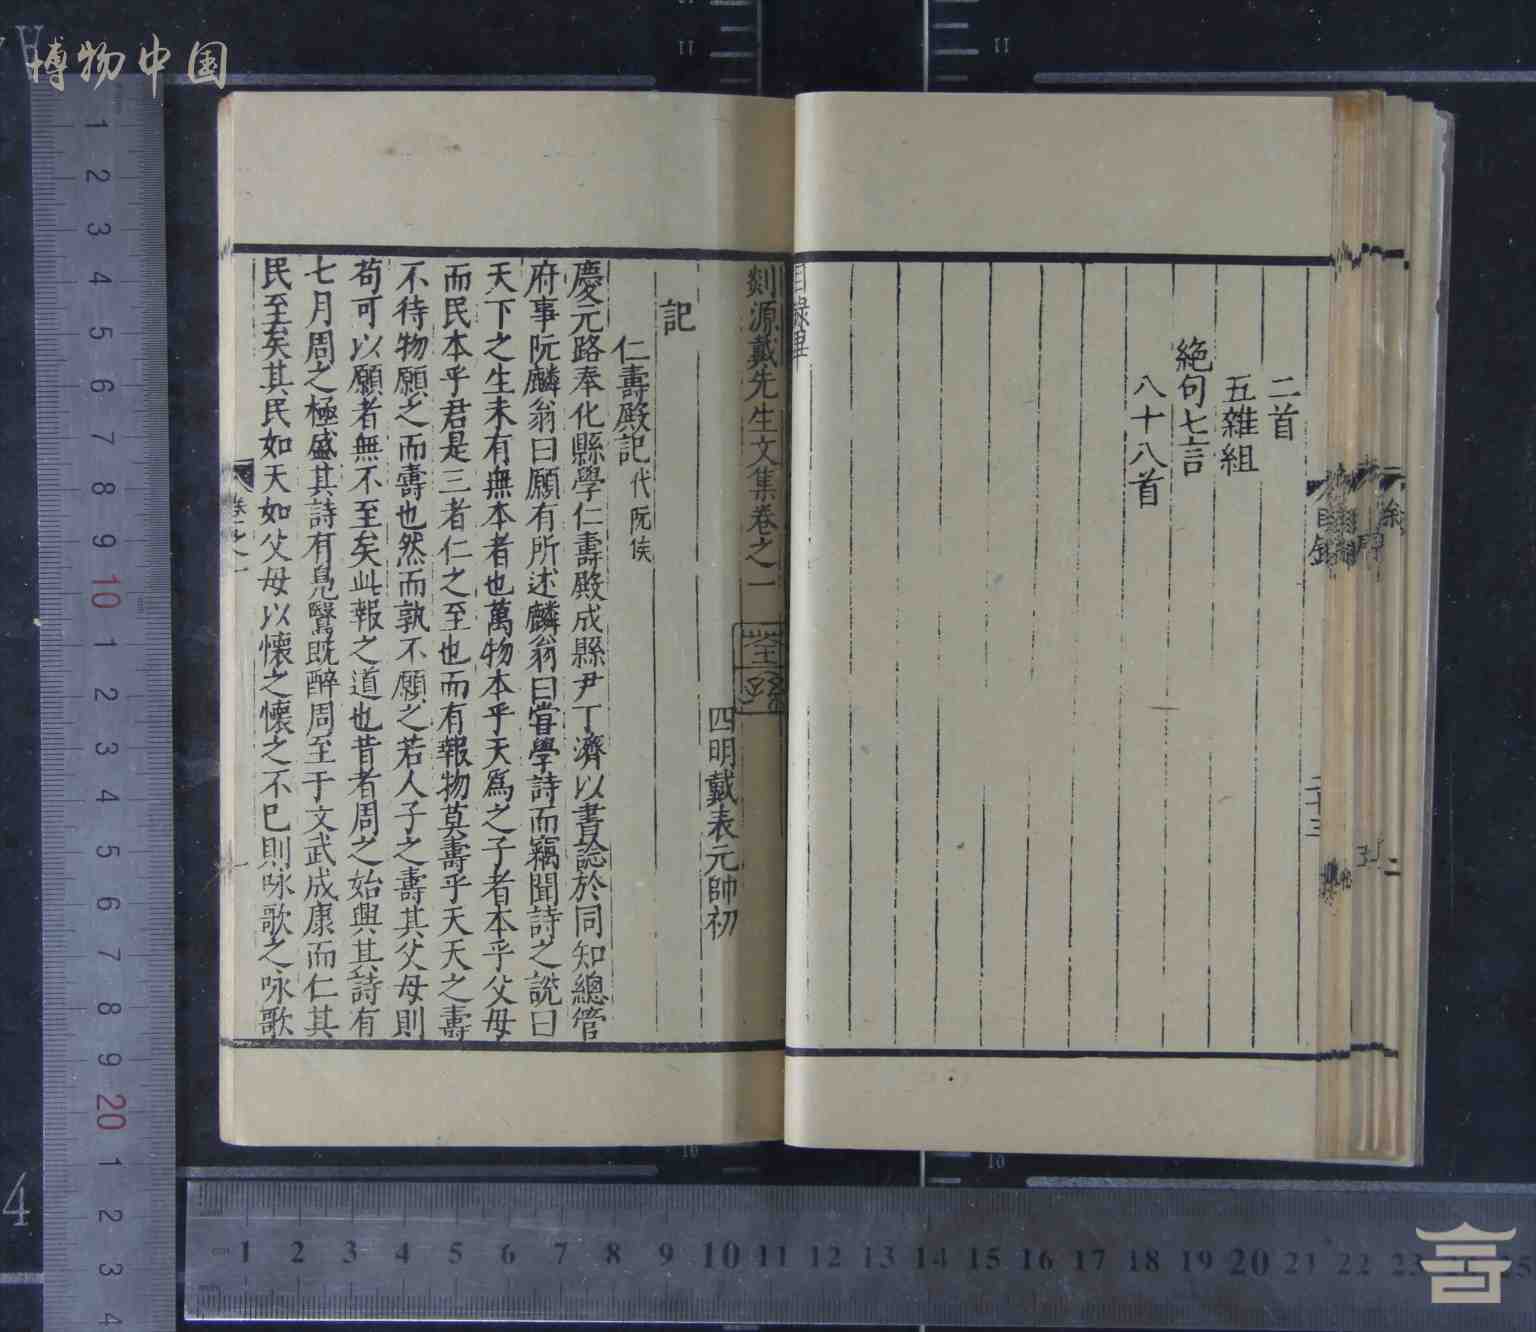 博物中国
二首
五雜組
絶句七言
八十八首
目錄畢
剡源戴先生文集卷之一
四明戴表元帥初
記
仁壽殿記代阮侯
慶元路奉化縣學仁壽殿成縣尹丁濟以書諗於同知總管
府事阮麟翁曰願有所述麟翁曰嘗學詩而竊聞詩之說曰
天下之生未有無本者也萬物本乎天爲之子者本乎父母
而民本乎君是三者仁之至也而有報物莫壽乎天天之壽
不待物願之而壽也然而孰不願之若人子之壽其父母則
苟可以願者無不至矣此報之道也昔者周之始興其詩有
七月周之極盛其詩有鳧鷖既醉周至于文武成康而仁其
民至矣其民如天如父母以懷之懷之不已則咏歌之咏歌
卷之一
一
1 2 3 4 5 6 7 8 9 10 1 2 3 4 5 6 7 8 9 20 1 2 3 4
1 2 3 4 5 6 7 8 9 10 11 12 13 14 15 16 17 18 19 20 21 22 23 25